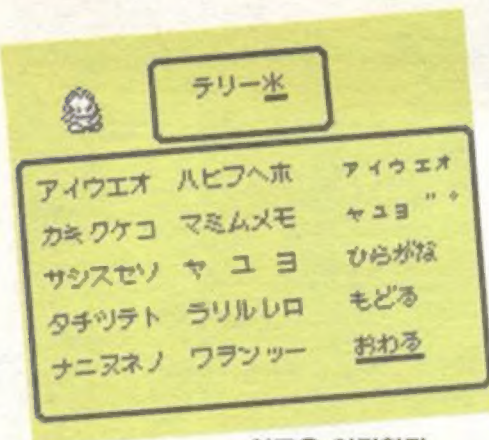 テリー*
アイウエオ ハヒフヘホ アイウエオ
カキクケコ マミムメモ ャュョ ゛ ゜
サシスセソ ヤ ユ ヨ ひらがな
タチツテト ラリルレロ もどる
ナニヌネノ ワヲンッー おわる